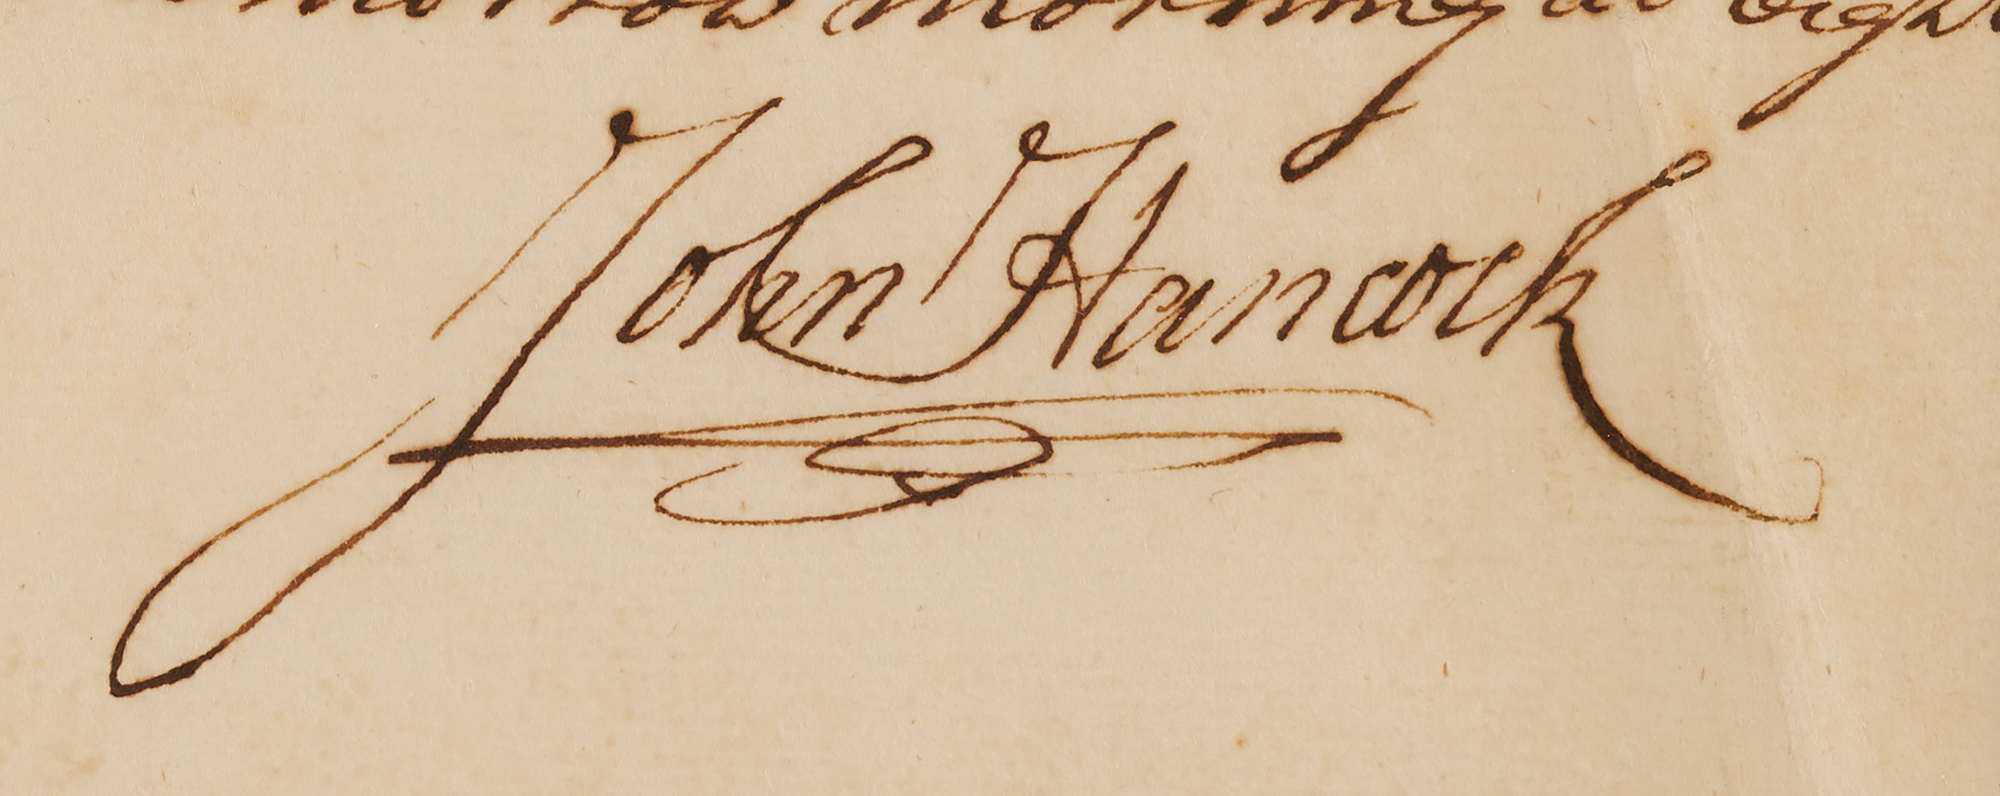 morning at eight
John Hancock